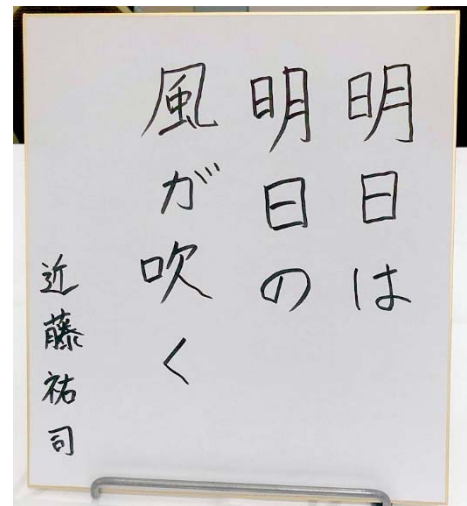 明日は
明日の
風が吹く
近藤祐司